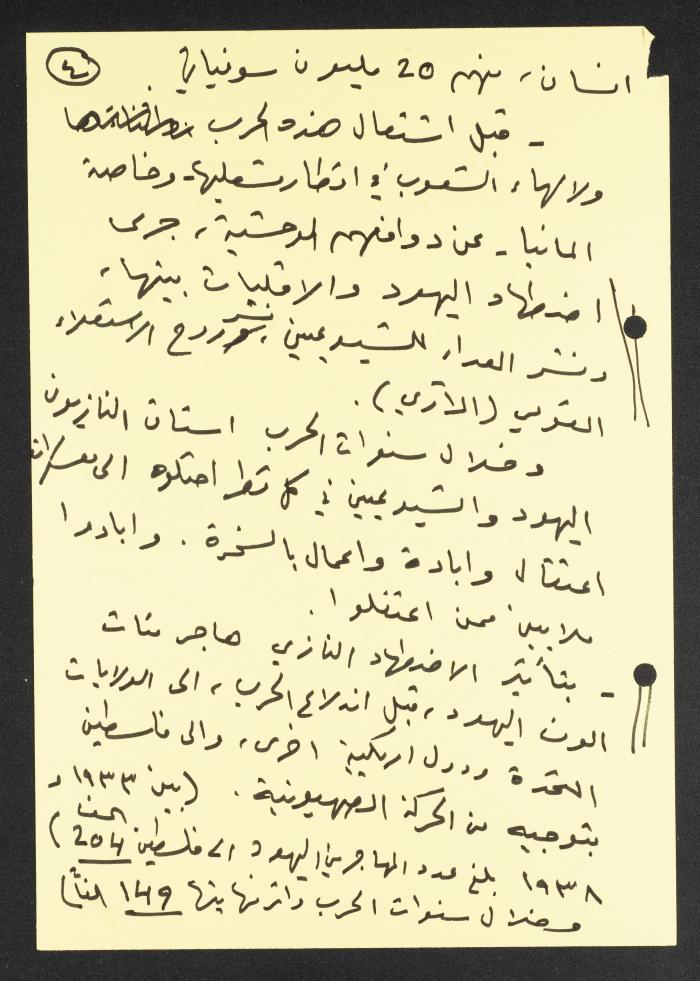 ٤
انسان، منهم 20 مليون سوفياتي.
- قبل اشتعال هذه الحرب
ولالهاء الشعوب في اقطار مشعليها - وخاصة
المانيا - عن دوافعهم الوحشية، جرى
اضطهاد اليهود والاقليات بينها،
ونشر العداء للشيوعيين، ونشر روح الاستعلاء
القومي (الآري).
وخلال سنوات الحرب استاق النازيون
اليهود والشيوعيين في كل قطر احتلوه الى معسكرات
اعتقال وابادة واعمال بالسخرة. وابادوا
ملايين ممن اعتقلوا.
- بتأثير الاضطهاد النازي هاجر مئات
الوف اليهود، قبل اندلاع الحرب، الى الولايات
المتحدة ودول اريكية اخرى، والى فلسطين
بتوجيه من الحركة الصهيونية. (بين ١٩٣٣ و
١٩٣٨ بلغ عدد المهاجرين اليهود الى فلسطين 204 الف)
وخلال سنوات الحرب واثر نهايتها 149 الفاً)